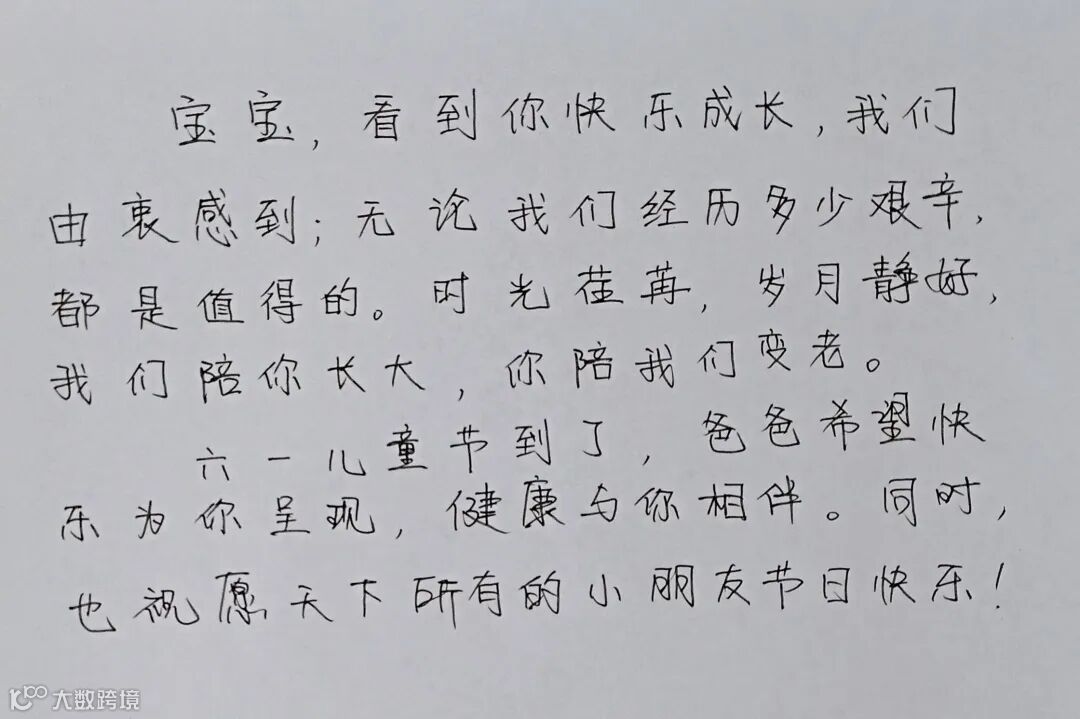 宝宝,看到你快乐成长,我们
由衷感到;无论我们经历多少艰辛,
都是值得的。时光荏苒,岁月静好,
我们陪你长大,你陪我们变老。
六一儿童节到了,爸爸希望快
乐为你呈现,健康与你相伴。同时,
也祝愿天下所有的小朋友节日快乐!
大数跨境